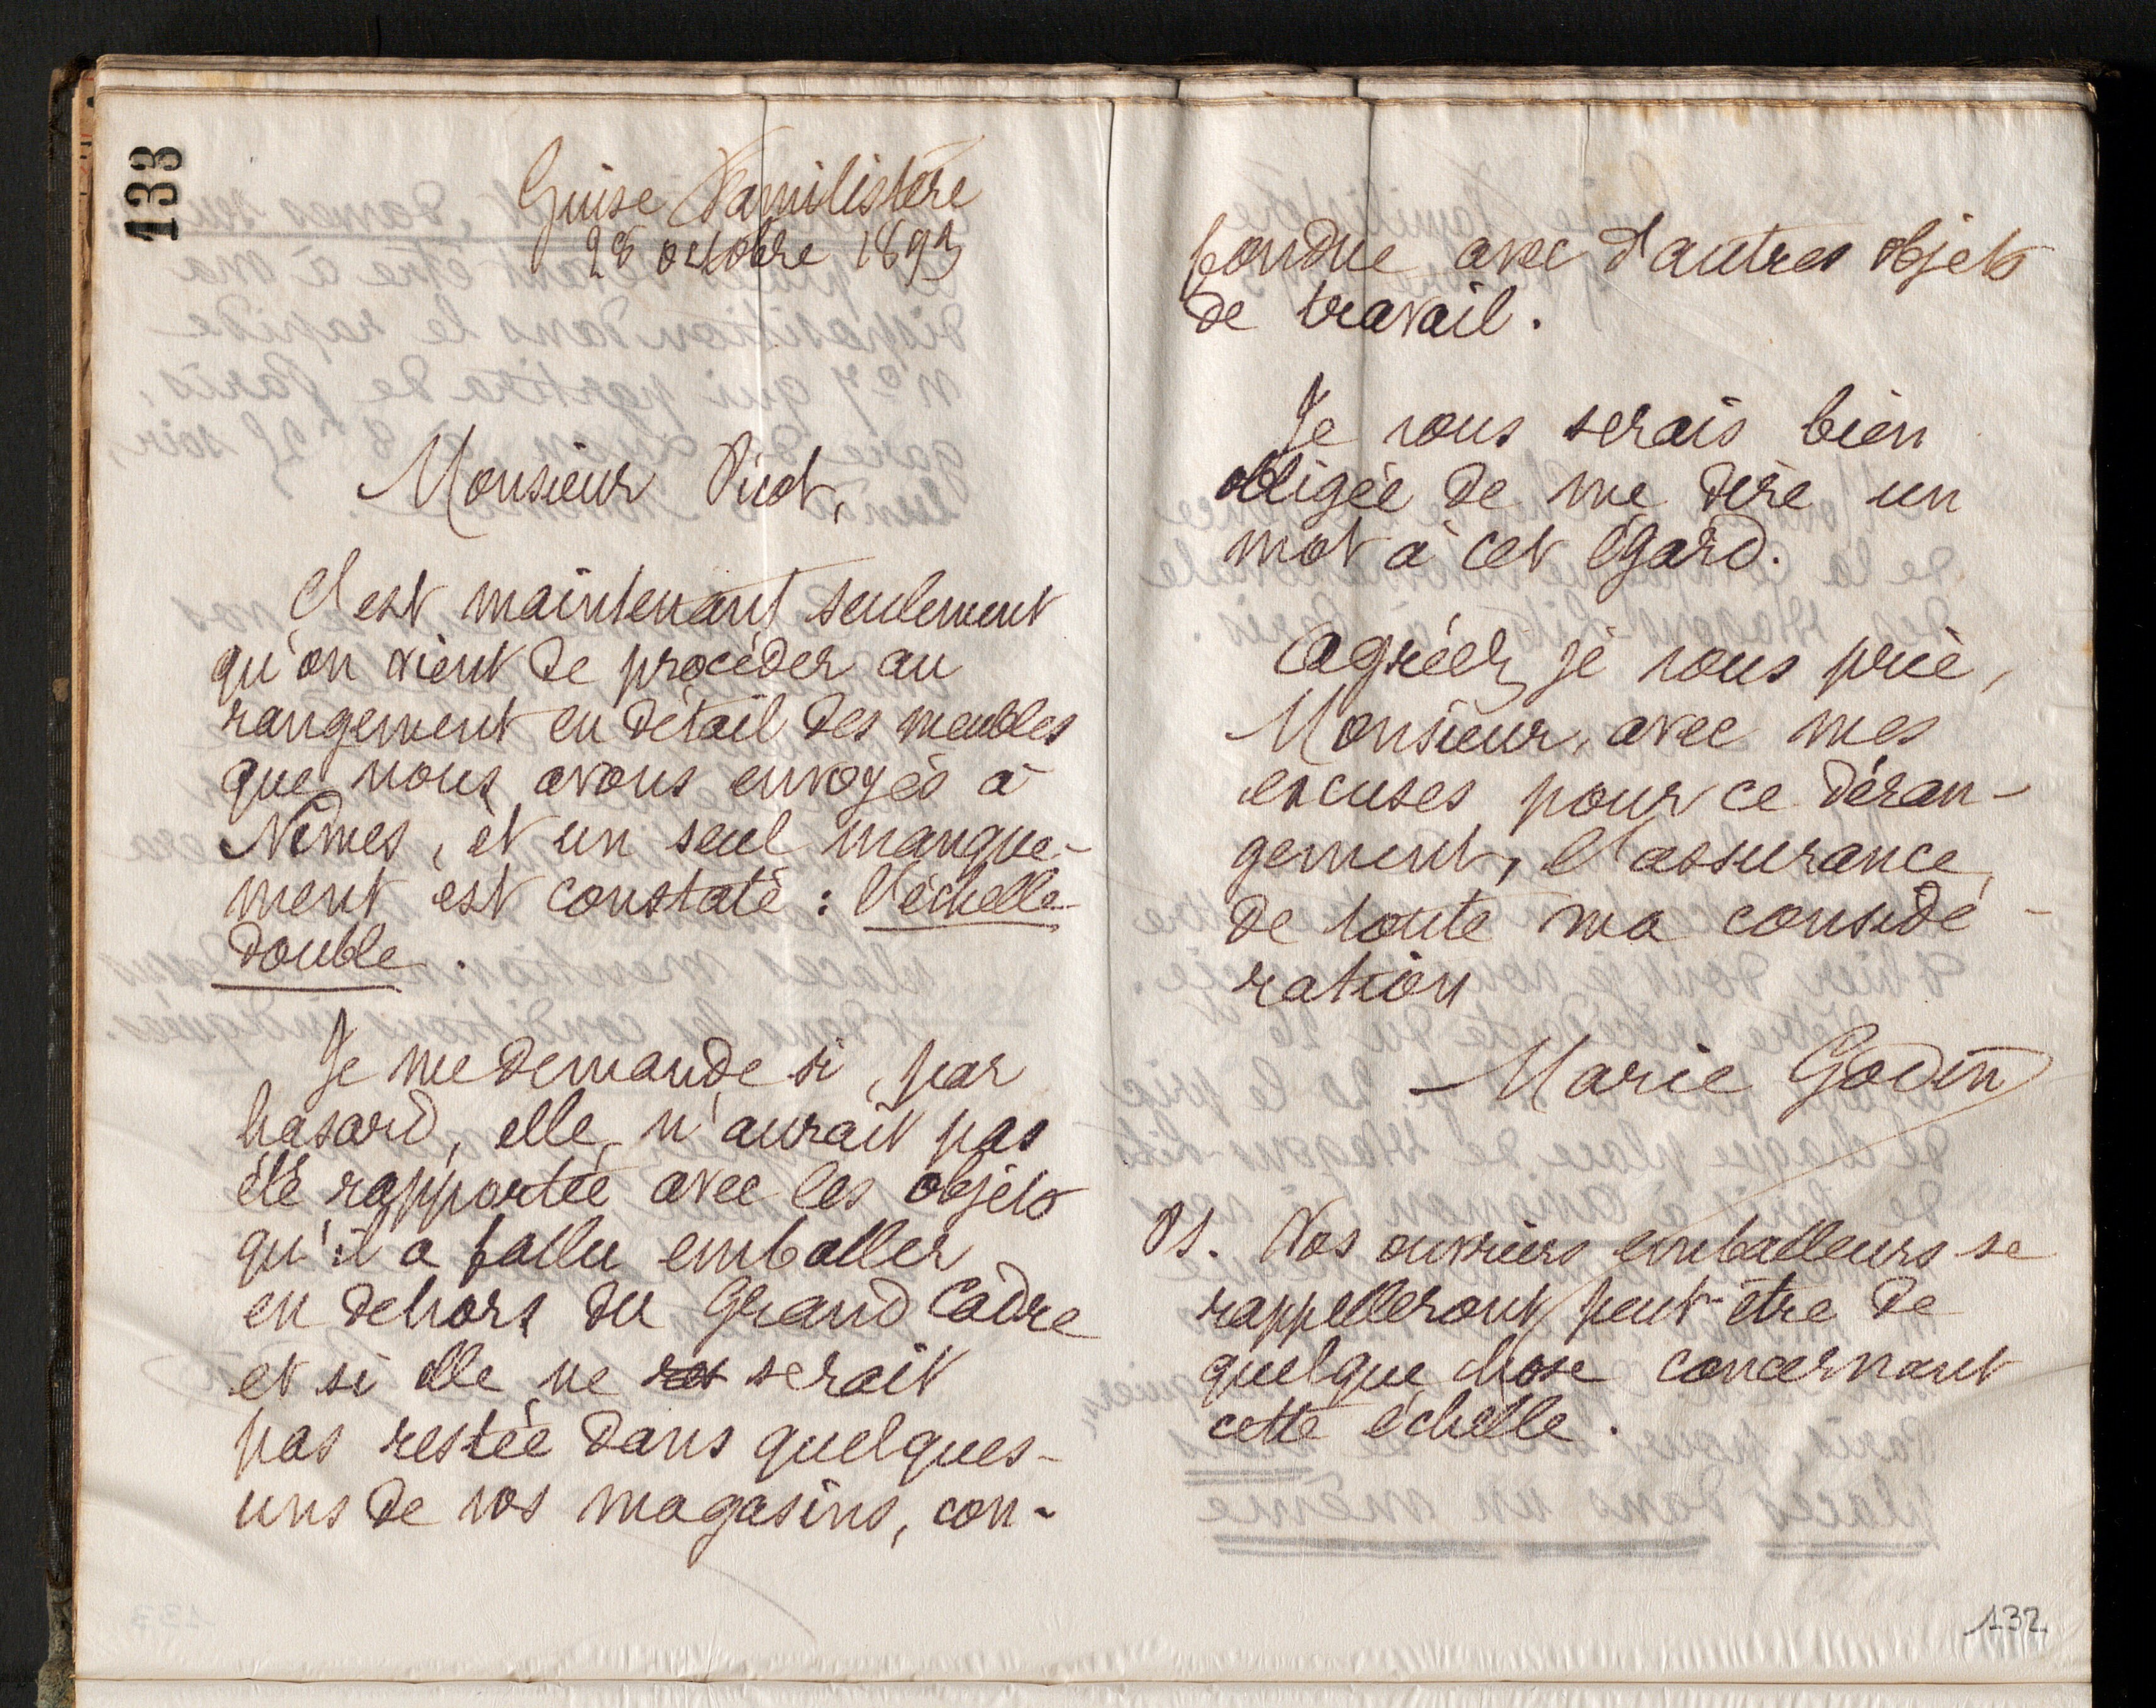 133
Guise Familistère
28 octobre 1893
Monsieur Picot,
C'est maintenant seulement
qu'on vient de procéder au
rangement en détail des meubles
que nous avons envoyés à
Nîmes, et un seul manque-
ment est constaté : l'échelle
double.
Je me demande si, par
hasard, elle n'aurait pas
été rapportée avec les objets
qu'il a fallu emballer
en dehors du Grand Cadre
et si elle ne res serait
pas restée dans quelques-
uns de vos magasins, con-
fondue avec d'autres objets
de travail.
Je vous serais bien
obligée de me dire un
mot à cet égard.
Agréez, je vous prie,
Monsieur, avec mes
excuses pour ce déran-
gement, l'assurance
de toute ma considé-
ration
Marie Godin
PS. Nos ouvriers emballeurs se
rappelleront peut-être de
quelque chose concernant
cette échelle.
132